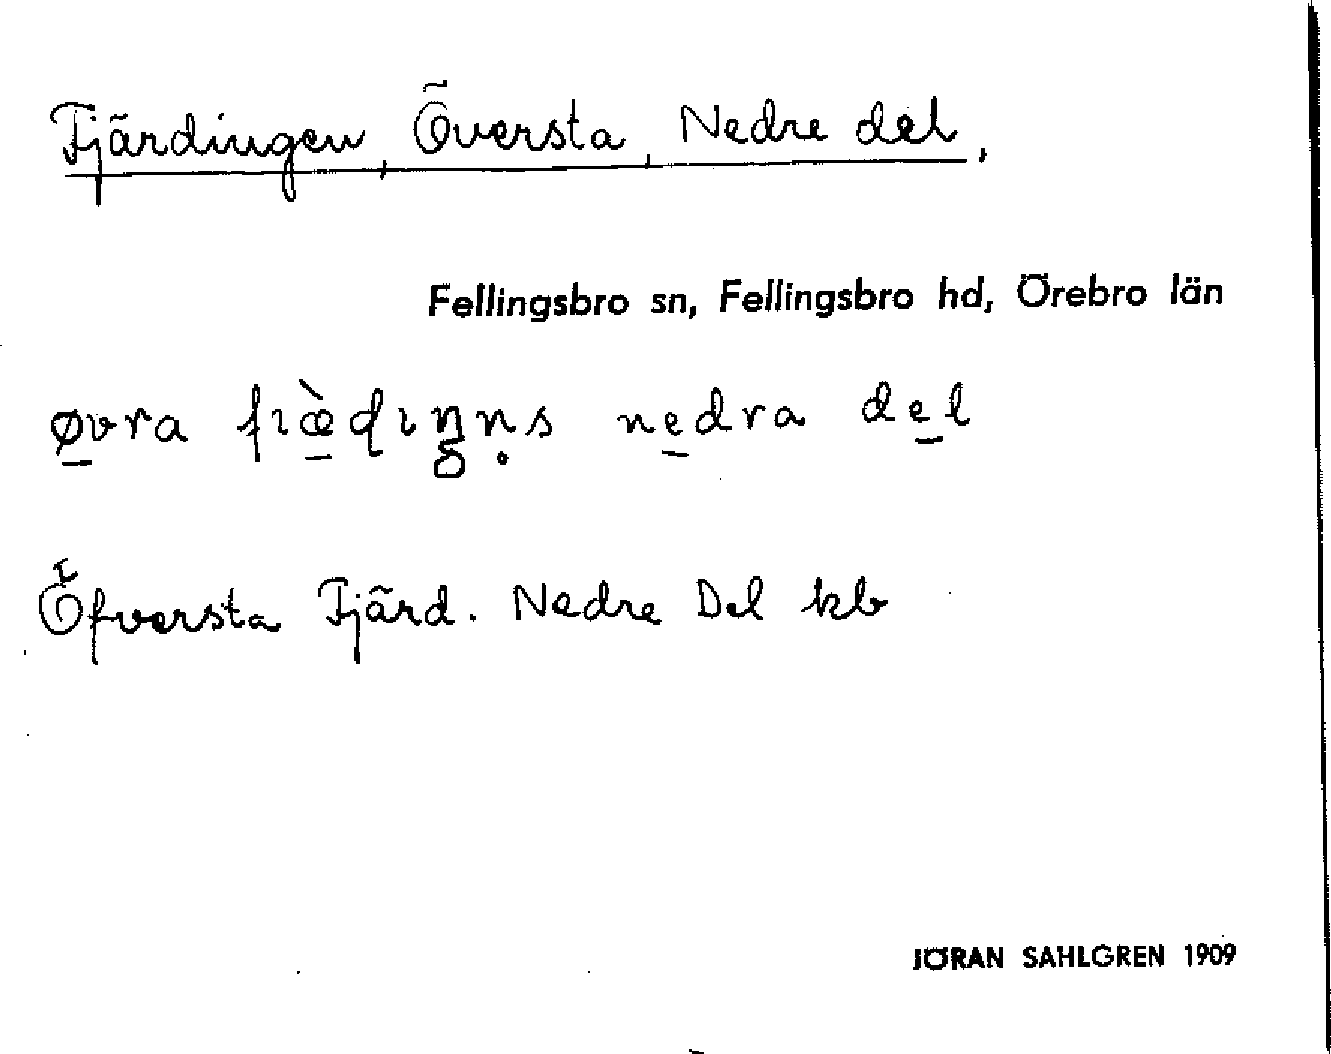 Fjärdingen, Översta, Nedre del,
Fellingsbro sn, Fellingsbro hd, Örebro län
øvra fıæ̀dıŋn̥s nedra del
Öfversta Fjärd. Nedre Del kb
JÖRAN SAHLGREN 1909